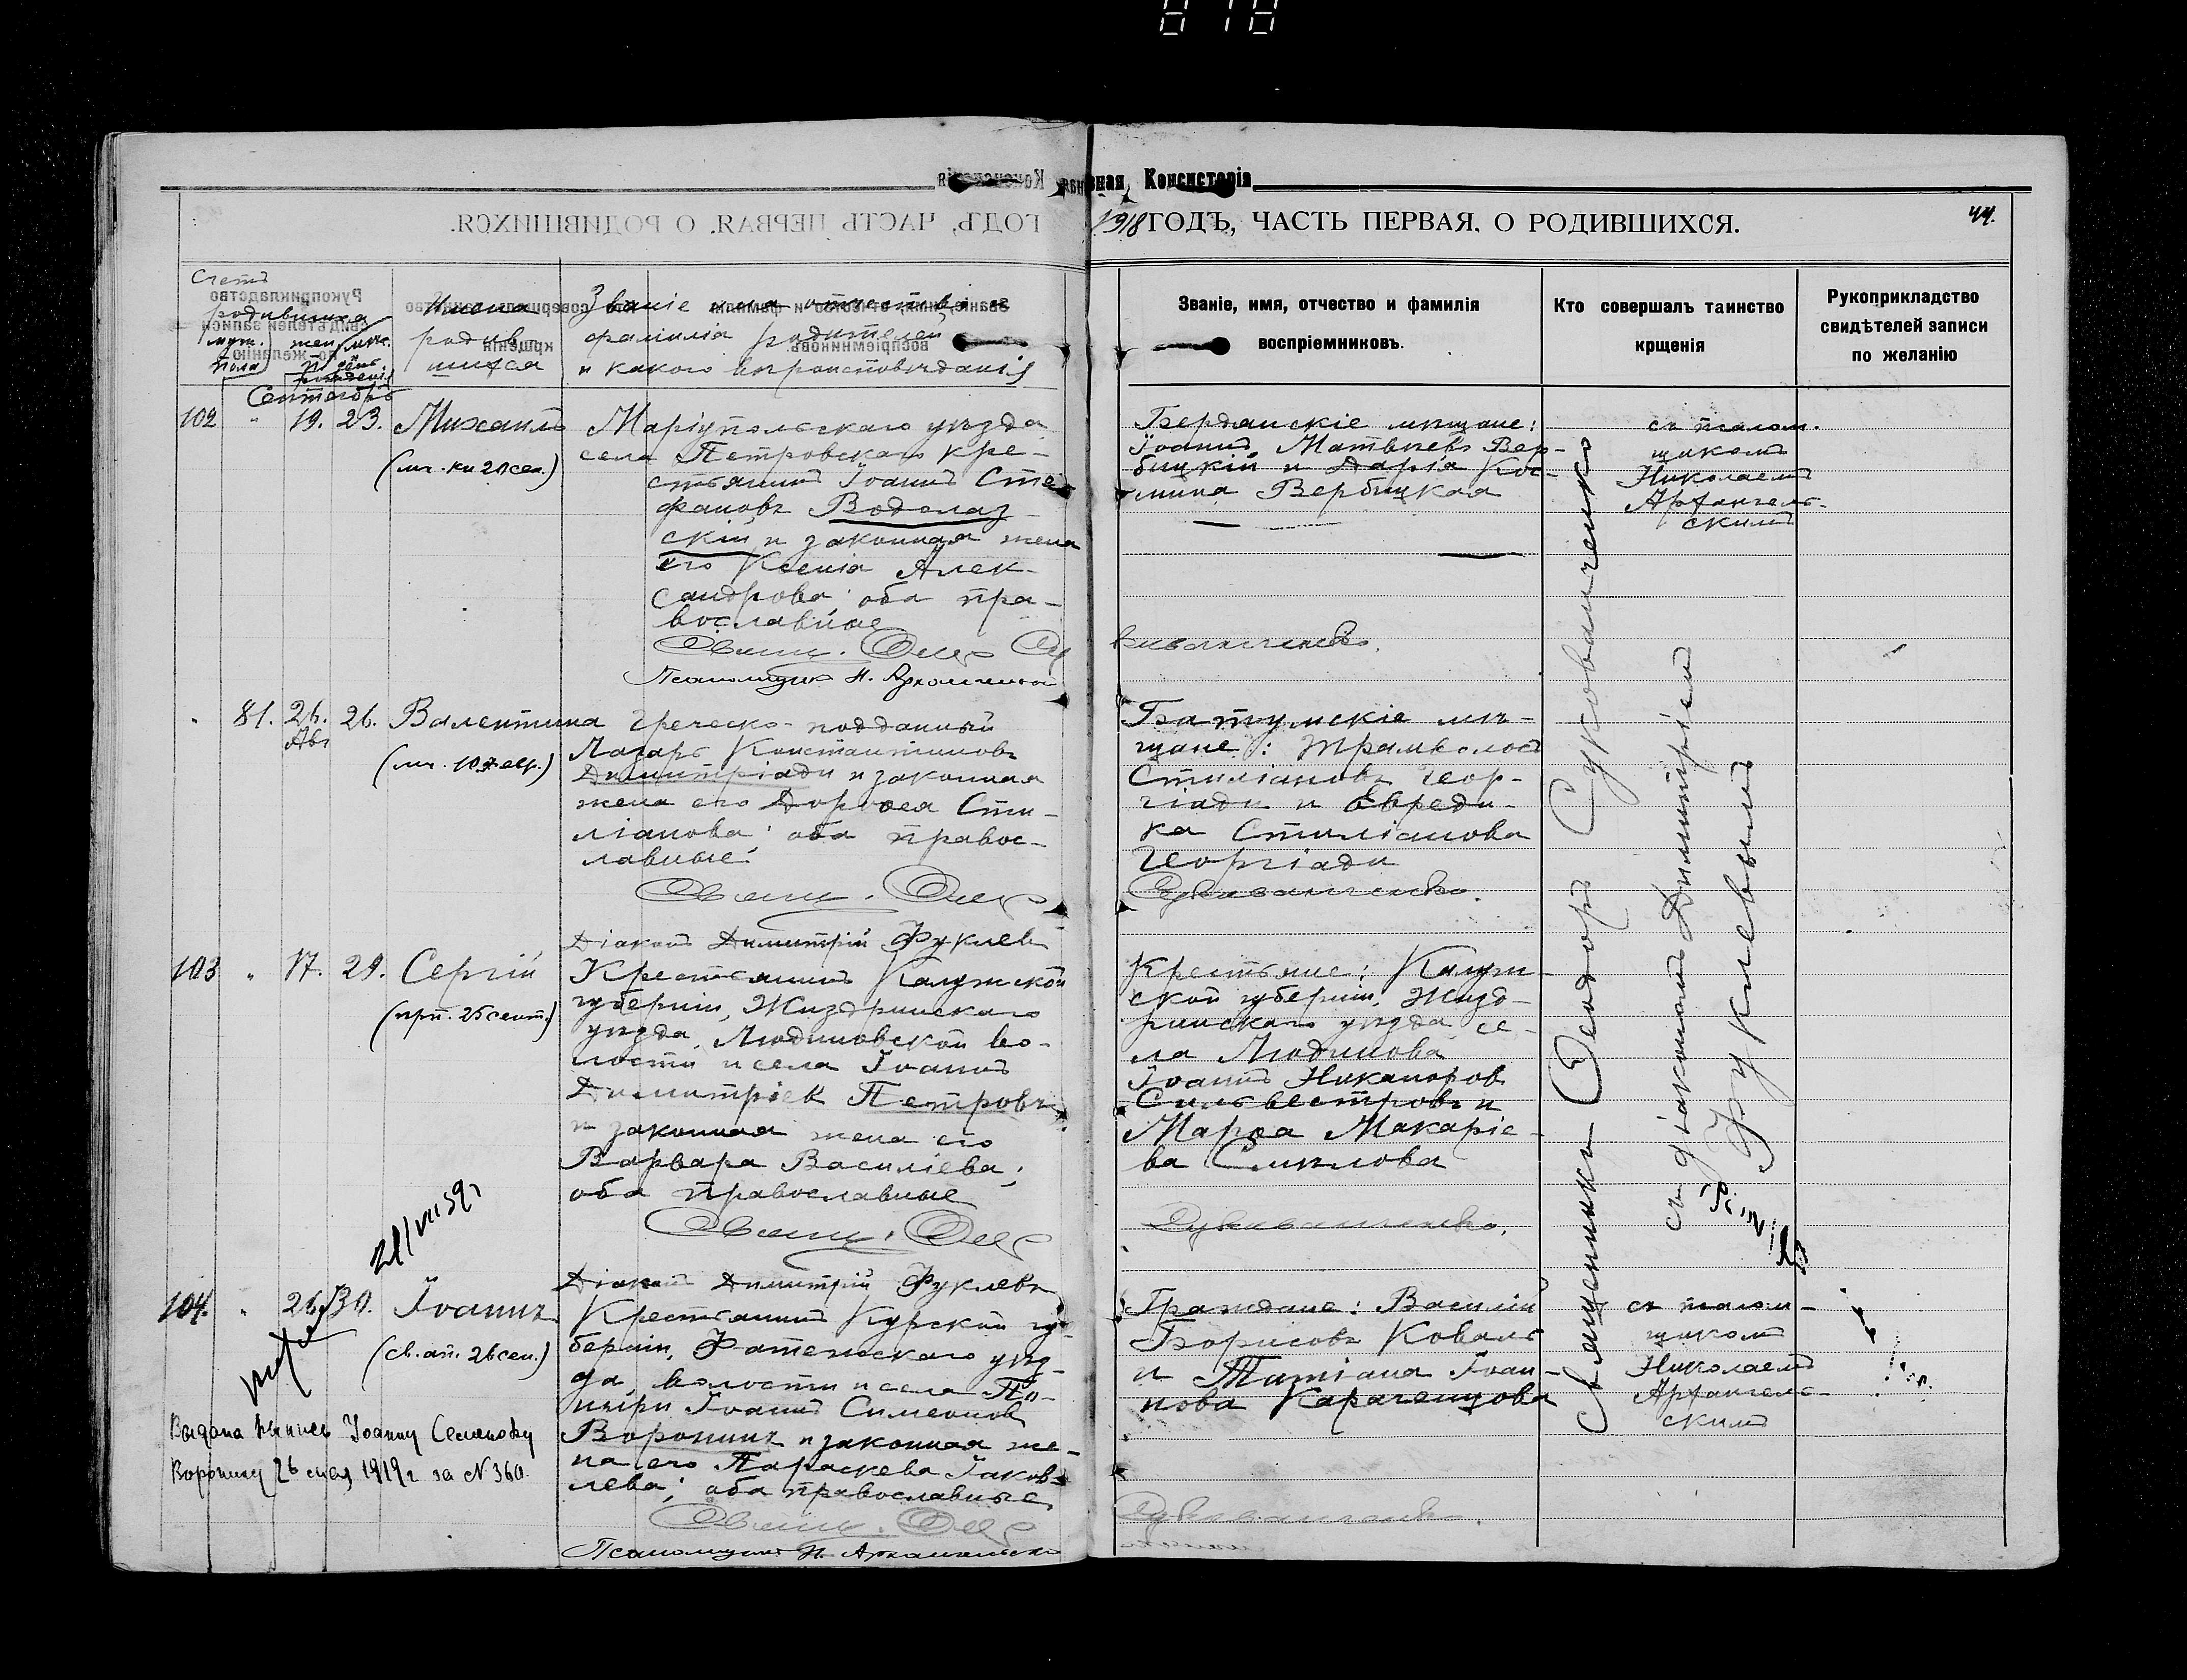 Консисторія
1918 ГОДЪ, ЧАСТЬ ПЕРВАЯ, О РОДИВШИХСЯ.
44.
Счетъ
родившихся
муж. пола
жен.
Имена
родив-
шихся
Званіе имя отчество и
фамилія родителей
и какого вѣроисповѣданія
Званіе, имя, отчество и фамилія
воспріемниковъ.
Кто совершалъ таинство
крщенія
Рукоприкладство
свидѣтелей записи
по желанію
Сентябрь
102 " 19. 23. Михаилъ
(мч. кн 20 сен.)
Маріупольскаго уѣзда
села Петровскаго кре-
стьянинъ Іоаннъ Сте-
фановъ Водолаз-
скій и законная жена
его Ксенія Алек-
сандрова; оба пра-
вославные
Свящ. Ѳеод. Су
киванченко.
Псаломщикъ Н. Архангельскій
Бердянскіе мѣщане:
Іоаннъ Матвѣевъ Вер-
бицкій и Дарія Кос-
мина Вербицкая
съ псалом-
щикомъ
Николаемъ
Архангель-
скимъ
" 81. 26. 26. Валентина
Авг
(мч. 10 февр.)
Греческо-подданный
Лазарь Константиновъ
Димитріади и законная
жена его Дороѳея Сти-
ліанова; оба правос-
лавные.
Свящ. Ѳеод.
Діаконъ Димитрій Фуклевъ
Батумскіе мѣ-
щане:
Стиліановъ Геор-
гіади и Евреди-
ка Стиліанова
Георгіади
103 " 17. 29. Сергій
(прп. 25 сент.)
Крестьянинъ Калужской
губерніи, Жиздринскаго
уѣзда, Людиновской во-
лости и села Іоаннъ
Димитріевъ Петровъ
и законная жена его
Варвара Василіева;
оба православные
Свящ. Ѳеод.
Діаконъ Димитрій Фуклевъ
Крестьяне: Калуж-
ской губерніи, Жизд-
ринскаго уѣзда се-
ла Людинова
Іоаннъ Никаноровъ
Сильвестровъ и
Марѳа Макаріе-
ва
Священникъ Ѳеодоръ
съ діакономъ Димитріемъ
Фуклевымъ
104. " 26. 30. Іоаннъ
(св. ап. 26 сен.)
Крестьянинъ Курской гу-
берніи, Фатежскаго уѣз-
да, волости и села По-
ныри Іоаннъ Симеоновъ
Воронинъ и законная же-
на его Параскева Іаков-
лева; оба православные
Свящ. Ѳеод.
Псаломщикъ Н. Архангельскій
Граждане: Василій
Борисовъ Коваль
и Татіана Іоан-
нова Карачевцова
съ псалом-
щикомъ
Николаемъ
Архангель-
скимъ
Выдана Іоанну Семенову
Воронину 26 мая 1919 г за № 360.